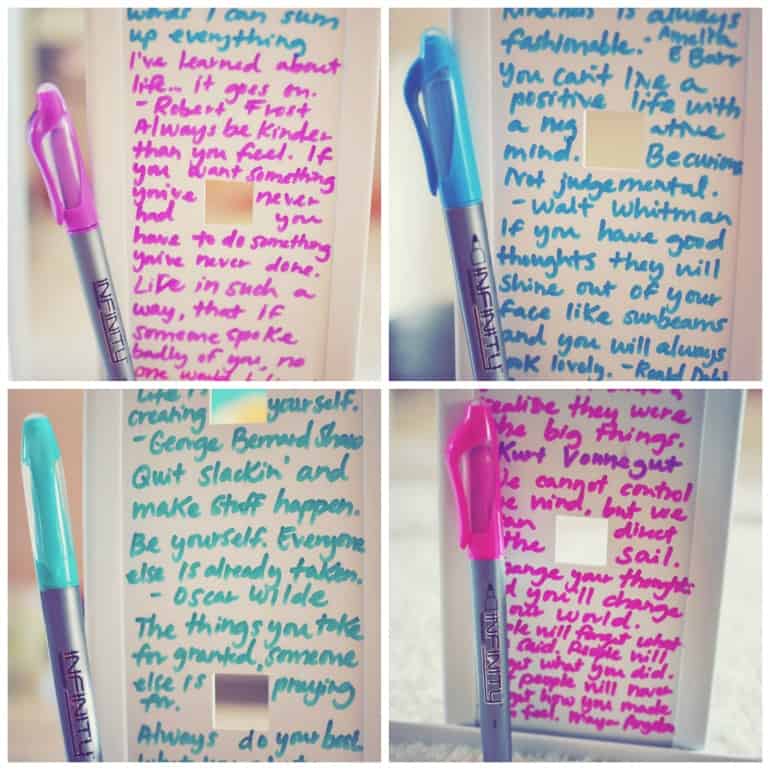 words I can sum
up everything
I've learned about
life... it goes on.
- Robert Frost
Always be kinder
than you feel. If
you want something
you've never
had you
have to do something
you've never done.
Live in such a
way, that if
someone spoke
badly of you, no
one would
INFINITY
Kindness is always
fashionable. - Amelia
E Barr
You can't live a
positive life with
a neg ative
mind. Be curious,
Not judgemental.
- Walt Whitman
If you have good
thoughts they will
shine out of your
face like sunbeams
and you will always
look lovely. - Roald Dahl
INFINITY
Life is
creating yourself.
- George Bernard Shaw
Quit slackin' and
make stuff happen.
Be yourself. Everyone
else is already taken.
- Oscar Wilde
The things you take
for granted, someone
else is praying
for.
Always do your best.
What you
INFINITY
realize they were
the big things.
Kurt Vonnegut
We cannot control
the wind, but we
can direct
the sail.
change your thoughts
d you'll change
our world.
ple will forget what
said. People will
get what you did.
people will never
get how you made
feel. Maya Angelou
INFINITY